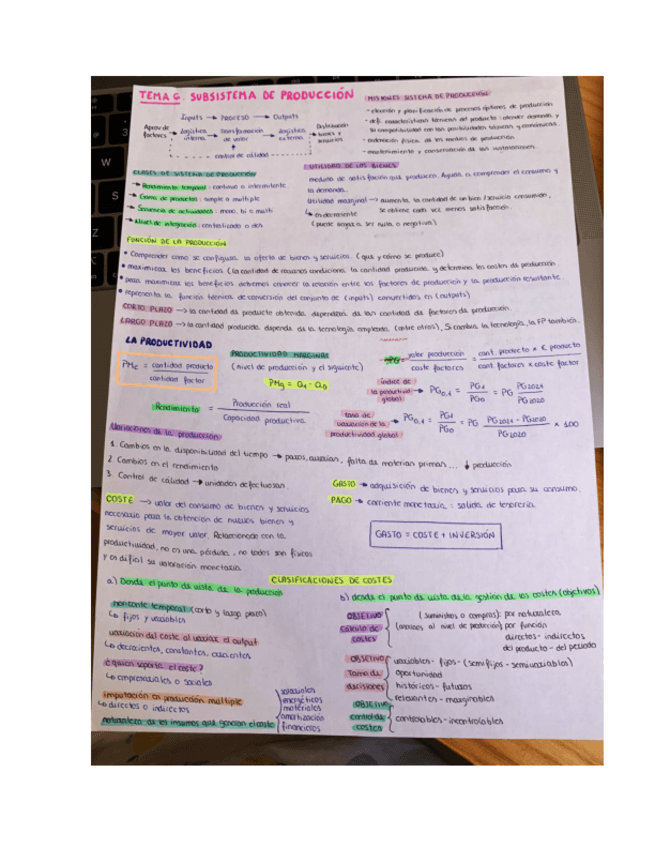 TEMA 6. SUBSISTEMA DE PRODUCCIÓN
Inputs → PROCESO → Outputs
Aprov. de factores → logística interna → transformación de valor → logística externa → Distribución bienes y servicios
control de calidad
MISIONES SISTEMA DE PRODUCCIÓN
- elección y planificación de procesos óptimos de producción
- def. características técnicas del producto: atender demanda y
su compatibilidad con las posibilidades técnicas y económicas
- ordenación física de los medios de producción
- mantenimiento y conservación de las
CLASES DE SISTEMA DE PRODUCCIÓN
→ Rendimiento temporal: continuo o intermitente
→ Gama de productos: simple o múltiple
→ Secuencia de actividades: mono, bi o multi
→ Nivel de integración: centralizado o des
UTILIDAD DE LOS BIENES
medida de satisfacción que producen. Ayuda a comprender el consumo y
la demanda.
Utilidad marginal → aumenta la cantidad de un bien/servicio consumido,
↳ es decreciente se obtiene cada vez menos satisfacción.
(puede llegar a ser nula o negativa)
FUNCIÓN DE LA PRODUCCIÓN
• Comprender como se configura la oferta de bienes y servicios. (que y como se produce)
• maximizar los beneficios (la cantidad de recursos condiciona la cantidad producida y determina los costes de producción.
• para maximizar los beneficios debemos conocer la relación entre los factores de producción y la producción resultante.
• representa la función técnica de conversión del conjunto de (inputs) convertidos en (outputs)
CORTO PLAZO → la cantidad de producto obtenida dependerá de la cantidad de factores de producción.
LARGO PLAZO → la cantidad producida depende de la tecnología empleada (entre otros), Si cambia la tecnología, la FP también.
LA PRODUCTIVIDAD
PMe = cantidad producto / cantidad factor
PRODUCTIVIDAD MARGINAL
(nivel de producción y el siguiente)
PMg = Q1 - Q0
PG = valor producción / coste factores = cant. producto x € producto / cant. factores x coste factor
índice de la productiv. global → PG0,1 = PG1 / PG0 = PG PG2021 / PG2020
Rendimiento = Producción real / Capacidad productiva
tasa de variación de la productividad global → PG0,1 = PG1 / PG0 = PG PG2021 - PG2020 / PG2020 x 100
Variaciones de la producción
1. Cambios en la disponibilidad del tiempo → paros, averías, falta de materias primas... ↓ producción
2. Cambios en el rendimiento
3. Control de calidad → unidades defectuosas.
GASTO → adquisición de bienes y servicios para su consumo.
PAGO → corriente monetaria: salida de tesorería.
COSTE → valor del consumo de bienes y servicios
necesario para la obtención de nuevos bienes y
servicios de mayor valor. Relacionado con la
productividad, no es una pérdida, no todos son físicos
y es difícil su valoración monetaria.
GASTO = COSTE + INVERSIÓN
CLASIFICACIONES DE COSTES
a) Desde el punto de vista de la producción
horizonte temporal (corto y largo plazo)
↳ fijos y variables
variación del coste al variar el output
↳ decrecientes, constantes, crecientes
¿quien soporta el coste?
↳ empresariales o sociales
imputación en producción múltiple
↳ directos o indirectos
naturaleza de los insumos que generan el coste
salariales
energéticos
materiales
amortización
financieros
b) desde el punto de vista de la gestión de los costes (objetivos)
OBJETIVO Cálculo de costes
(suministros o compras): por naturaleza
(atención al nivel de producción) por función
directos - indirectos
del producto - del periodo
OBJETIVO Toma de decisiones
variables - fijos - (semifijos - semivariables)
oportunidad
históricos - futuros
relevantes - marginables
OBJETIVO control de costes
controlables - incontrolables